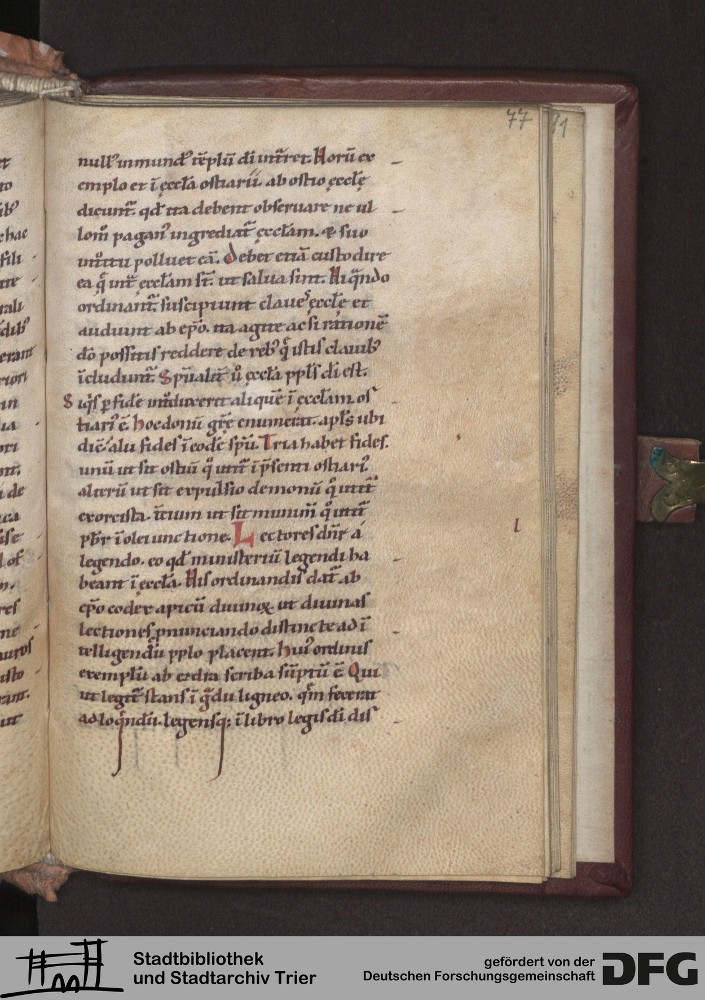 77 91
null᷒ inmund᷒ tēplū dī int̄ret. Horū ex
emplo et ī ęccl̄a ostiarii. ab ostio ęccl̄ę
dicunt᷒. qd̄ ita debent obseruare ne ul
lom̄ pagan᷒ ingrediat᷒ ęccl̄am. & suo
int̄itu polluet eā. Debet etiā custodire
ea q̄ int̄ ęccl̄am st̄. ut salua sint. Hi q̄ndo
ordinant᷒. suscipiunt claues ęccl̄e et
audiunt ab ep̄o. ita agite ac si rationē
dō possitis reddere de reb᷒ q̄ istis clauib᷒
īcludunt᷒. Sp̄ualit᷒ ū ęccl̄a ppl̄s dī est.
Siq̄s ꝑ fidē int̄duxerit aliquē ī ęccl̄am. os
tiari᷒ ē. hoc donū gr̄ę enumerat. apl̄s ubi
dic̄. alii fides ī eodē sp̄u. Tria habet fides.
unū ut sit ostiū q̄ intit̄ ī p̄senti ostiari᷒.
alterū ut sit expulsio demonū q̄ intit̄
exorcista. t̄cium ut sit munim̄ q̄ intit̄
pb̄r ī olei unctione. Lectores dn̄r á
legendo. eo qd̄ ministeriū legendi ha
beant ī ęccl̄a. His ordinandis dat᷒ ab
ep̄o codex apicū diuinoꝝ. ut diuinas
lectiones pnunciando distincte ad ī
telligendū pplo placent. hui᷒ ordinis
exemplū ab ezdra scriba sūptū ē. Qui
ut legit᷒ stans ī ḡdu ligneo. q̄m fecerat
ad loq̄ndū. legensq; ī libro legis dī dis
l
Stadtbibliothek
und Stadtarchiv Trier
gefördert von der
Deutschen Forschungsgemeinschaft
DFG